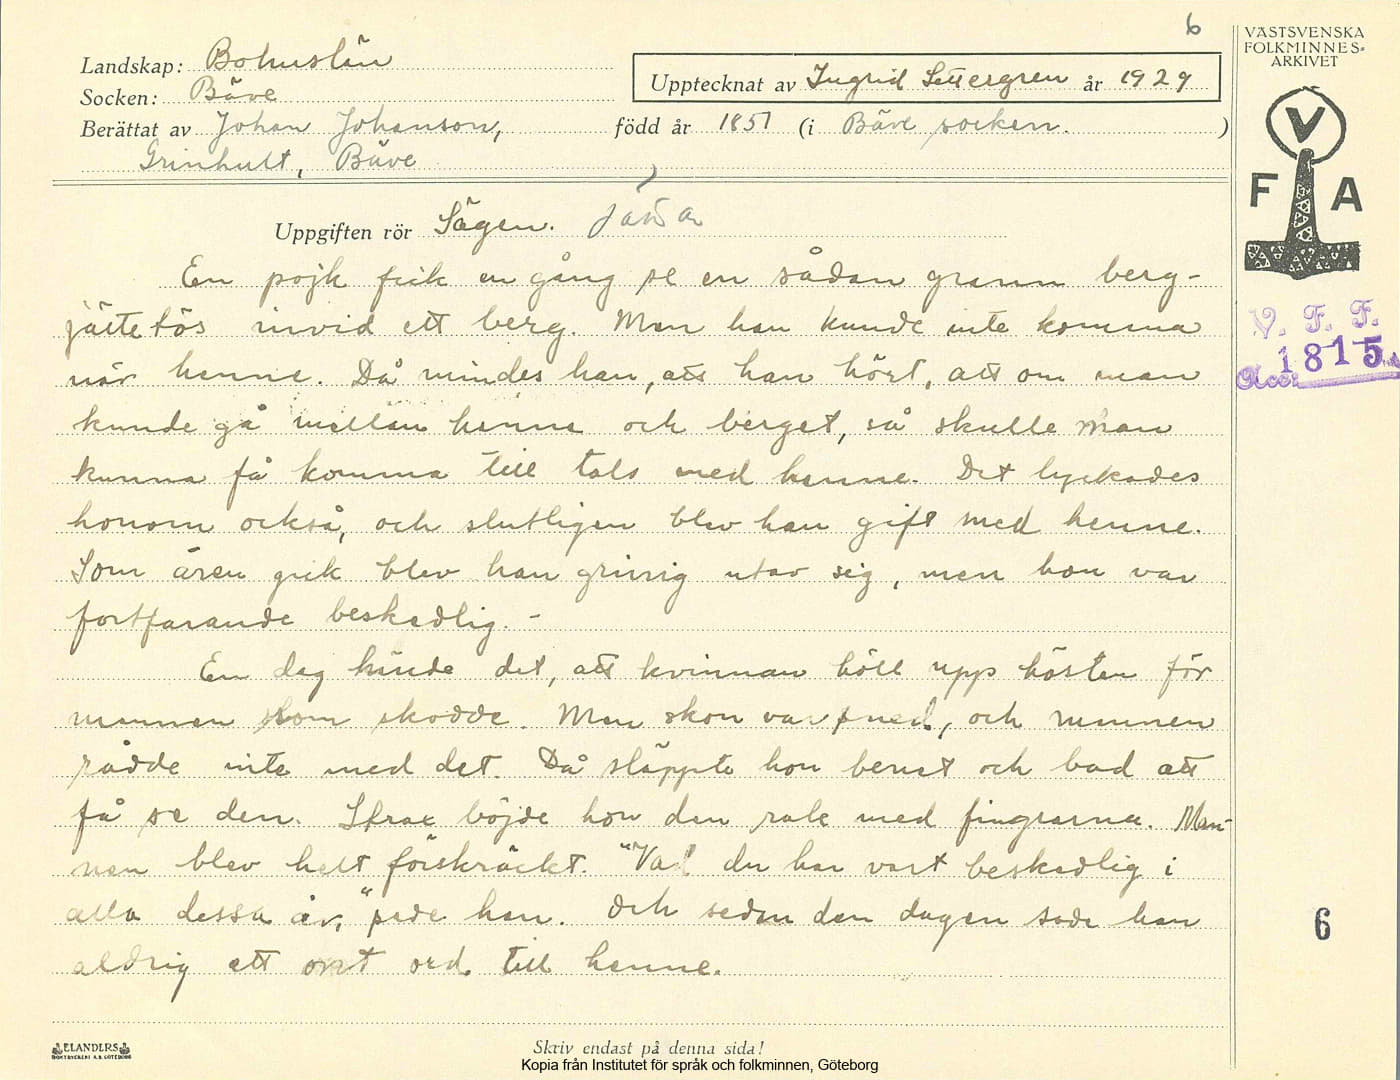 6
VÄSTSVENSKA
FOLKMINNES-
ARKIVET
Landskap: Bohuslän
Upptecknat av Ingrid Settergren år 1929
Socken: Bäve
Berättat av Johan Johanson, född år 1851 (i Bäve socken.)
Grinhult, Bäve
V
F A
Uppgiften rör Sägen. Jätta
En pojk fick en gång se en sådan grann berg-
jättetös invid ett berg. Men han kunde inte komma
när henne. Då mindes han, att han hört, att om man
kunde gå mellan henne och berget, så skulle man
kunna få komma till tals med henne. Det lyckades
honom också, och slutligen blev han gift med henne.
Som åren gick blev han grinig utav sig, men hon var
fortfarande beskedlig. -
En dag hände det, att kvinnan höll upp hästen för
mannen som skodde. Men skon var sned, och mannen
rådde inte med det. Då släppte hon benet och bad att
få se den. Strax böjde hon den rak med fingrarna. Man-
nen blev helt förskräckt. "Vad du har vart beskedlig i
alla dessa år," sade han. Och sedan den dagen sade han
aldrig ett ont ord till henne.
V. F. F.
Acc: 1815
6
ELANDERS
BOKTRYCKERI A.B. GÖTEBORG
Skriv endast på denna sida!
Kopia från Institutet för språk och folkminnen, Göteborg